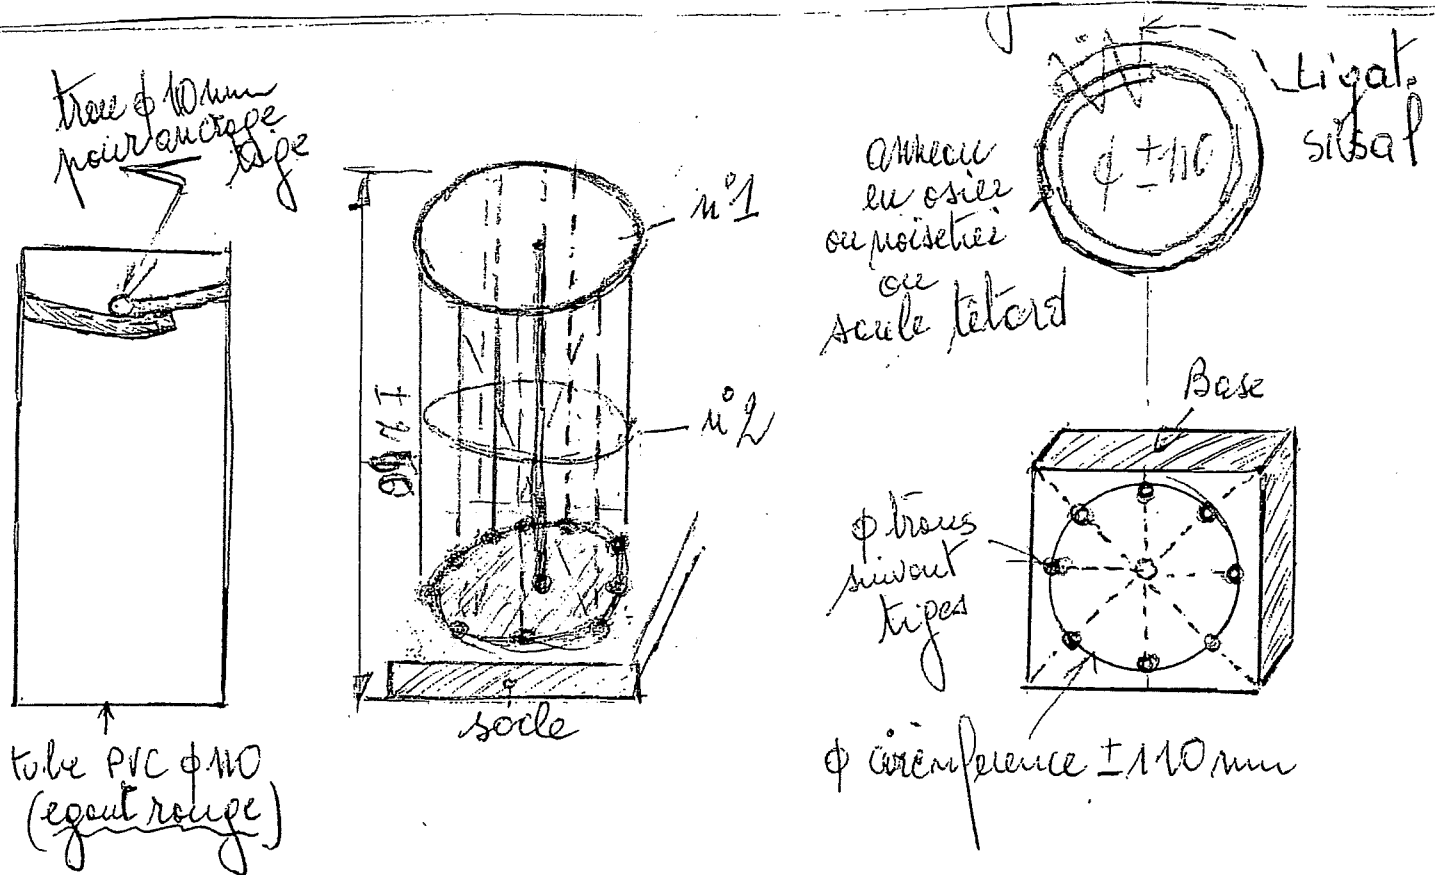 trou ϕ 10 mm
pour ancrage
tige
tube PVC ϕ 110
(egout rouge)
n°1
n°2
socle
Ligat.
sisal
anneau
en osier
ou noisetier
ou
saule têtard
ϕ ± 110
Base
ϕ trous
suivant
tiges
ϕ circonference ± 110 mm